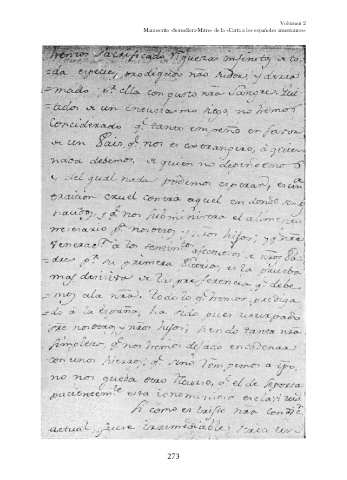 Volumen 2
Manuscrito «Semillera-Mitre» de la «Carta a los españoles americanos»
hemos Sacrificado riquezas infinitas de to-
da especie, prodigado nro sudor, y derra
mado pr ella con gusto nra Sangre. Gui
tados de un entusiasmo no hemos
considerado qe tanto empeño en favor
de un Pais qe nos es extrangero, à quien
nada debemos, de quien no dependemos
y del qual nada podemos esperar, es un
traicion cruel contra aquel en donde somos
nacidos, y qe nos subministra el alimento
necesario pa nosotros y nros hijos; y qe nra
veneracn a los sentimtos afectuosos de nros Pa-
dres pr su primera Patria, es la prueba
mas decisiva de la preferencia qe debe
mos a la nra. Todo lo qe hemos prodiga
do à la España, ha sido pues usurpado
sobre nosotros y nros hijos; siendo tanta nra
simpleza, qe nos hemos dejado encadenar
con unos hierros, qe sino rompemos a tpo,
no nos queda otro recurso qe el de soportar
pacientemte esta ignominiosa esclavitud
Si como es triste nra condicn
actual, fuese irremediable, seria un
273